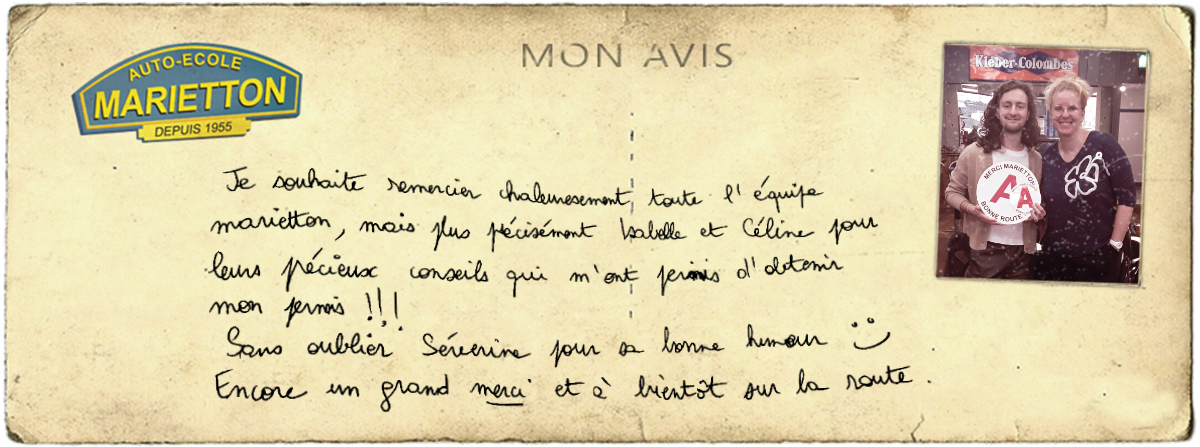 MON AVIS
AUTO-ECOLE
MARIETTON
DEPUIS 1955
Kléber-Colombes
MERCI MARIETTON
A A
BONNE ROUTE
Je souhaite remercier chaleuresement toute l'équipe
marietton, mais plus précisément Isabelle et Céline pour
leurs précieux conseils qui m'ont permis d'obtenir
mon permis !!!
Sans oublier Séverine pour sa bonne humour
Encore un grand merci et à bientôt sur la route.